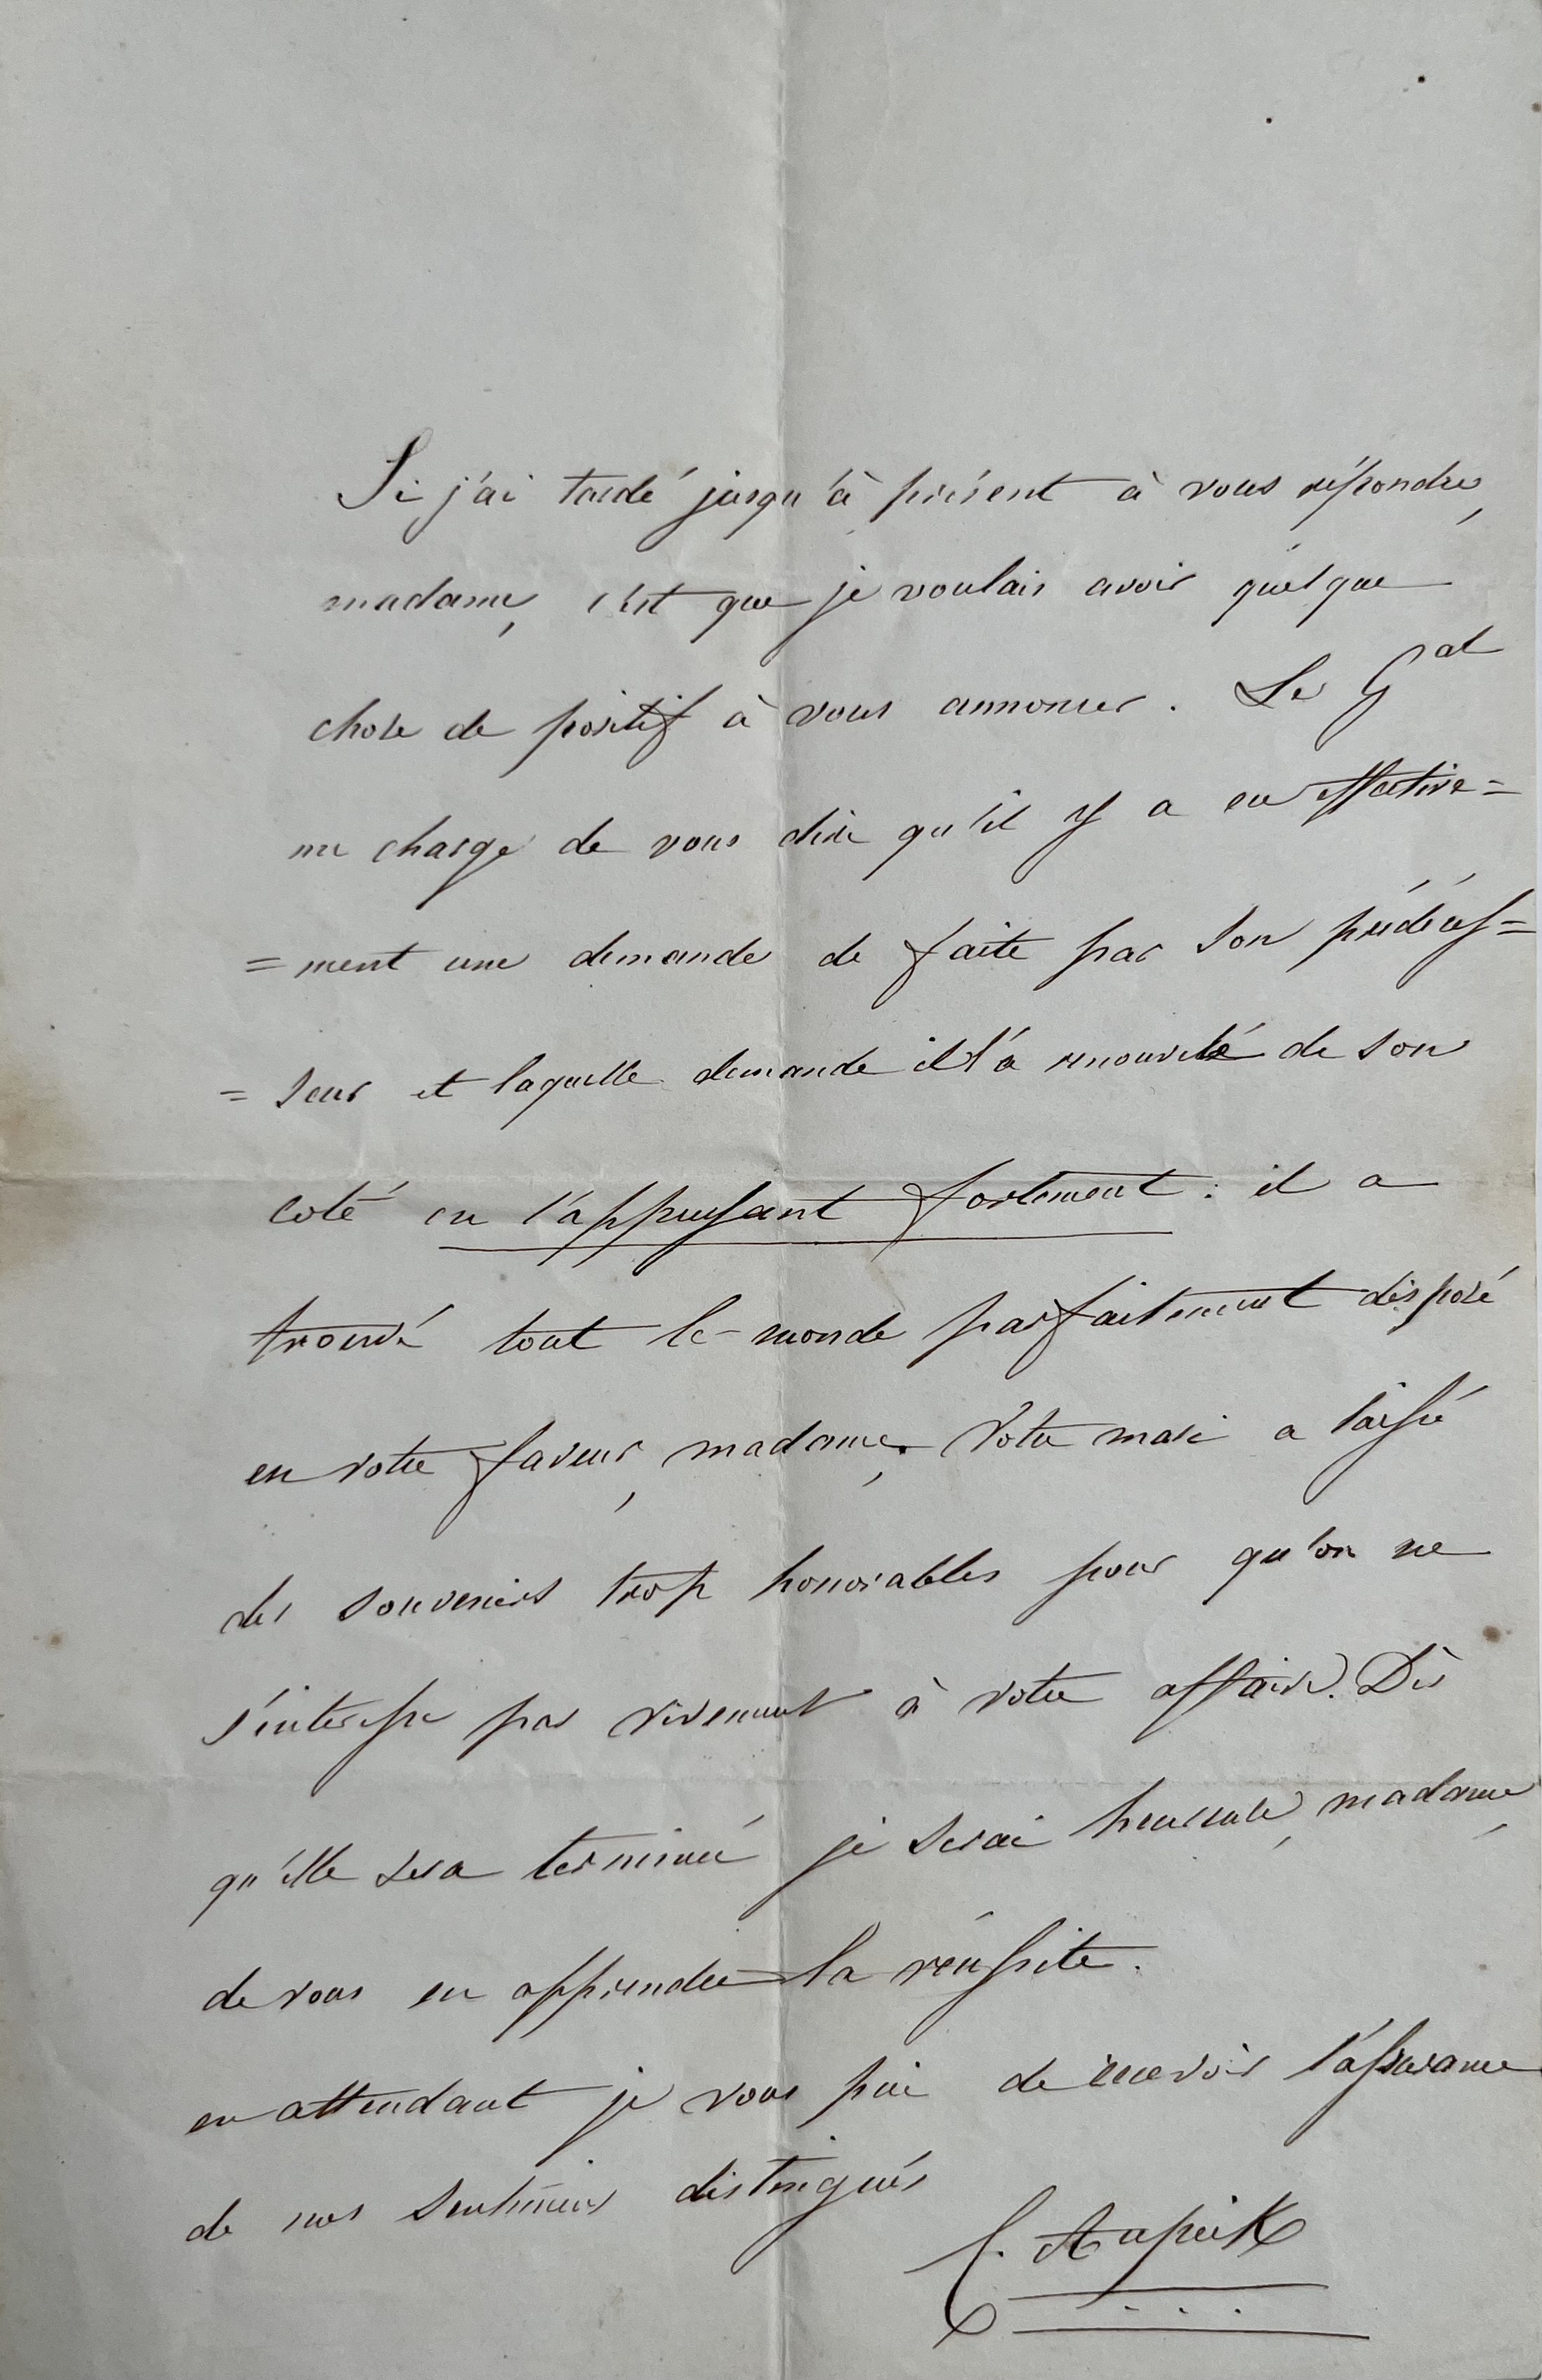 Si j'ai tardé jusqu'à présent à vous répondre,
madame, c'est que je voulais avoir quelque
chose de positif à vous annoncer. Le Gal
me charge de vous dire qu'il y a eu effective=
=ment une demande de faite par son prédéces=
=seur et laquelle demande il l'a renouvelé de son
coté en l'appuyant fortement : il a
trouvé tout le monde parfaitement disposé
en votre faveur, madame. Votre mari a laissé
des souvenirs trop honorables pour qu'on ne
s'intéresse pas vivement à votre affaire. Dès
qu'elle sera terminée je serai heureuse, madame,
de vous en apprendre la réussite.
en attendant je vous prie de recevoir l'assurance
de mes sentimens distingués
C. Aupick